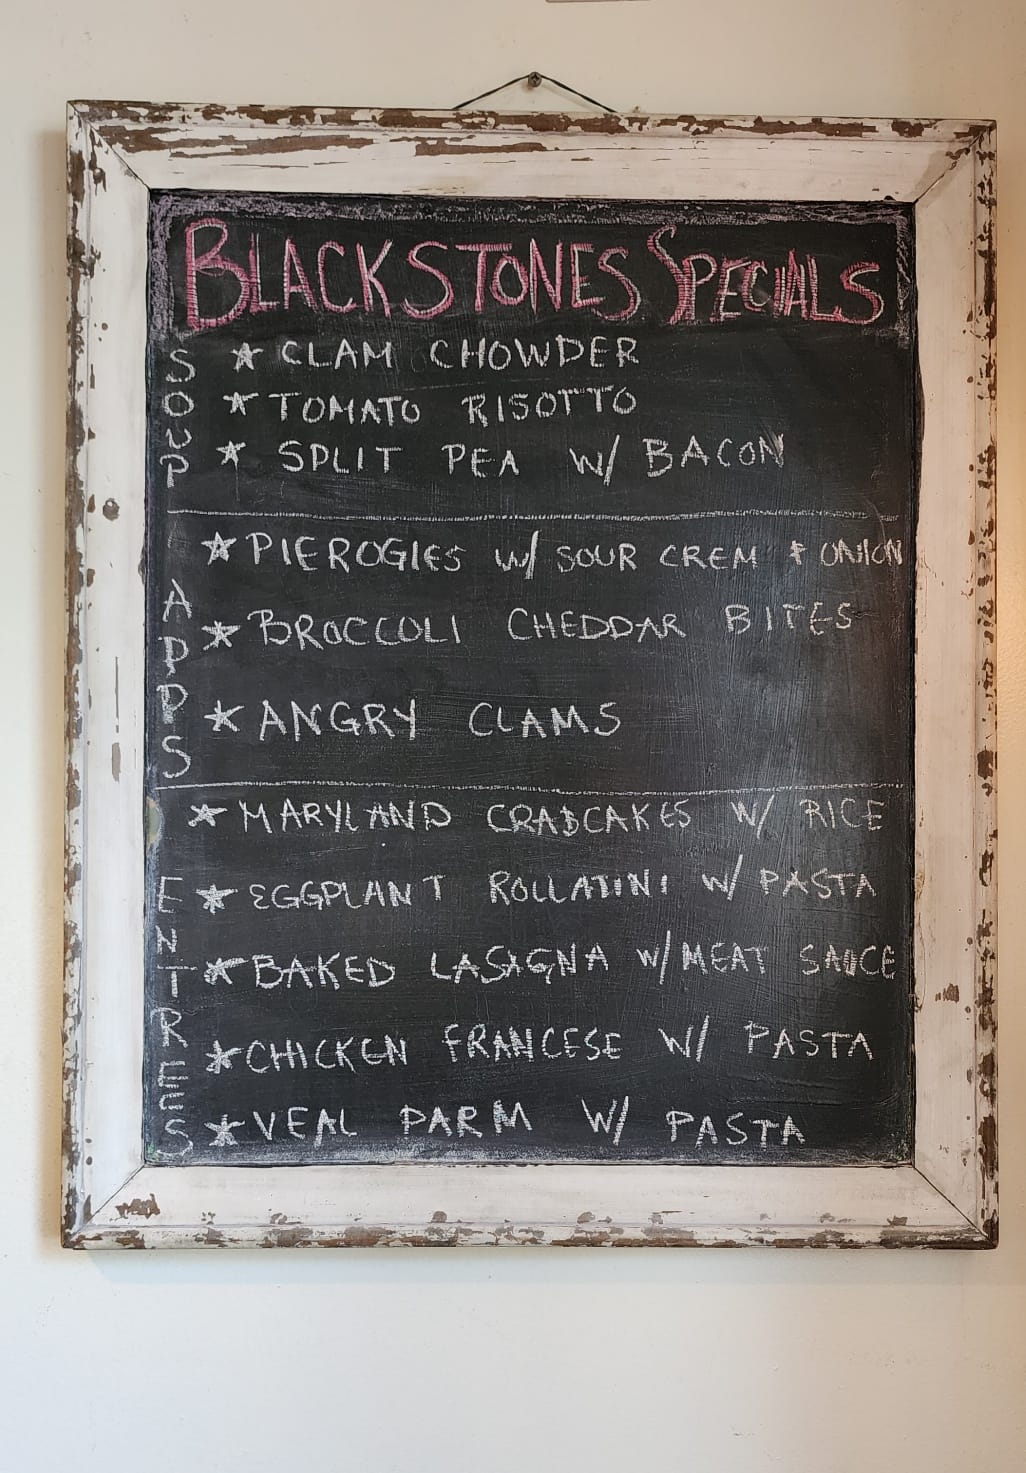 BLACKSTONES SPECIALS
SOUP
★ CLAM CHOWDER
★ TOMATO RISOTTO
★ SPLIT PEA W/ BACON
APPS
★ PIEROGIES W/ SOUR CREM & ONION
★ BROCCOLI CHEDDAR BITES
★ ANGRY CLAMS
ENTREES
★ MARYLAND CRABCAKES W/ RICE
★ EGGPLANT ROLLATINI W/ PASTA
★ BAKED LASAGNA W/ MEAT SAUCE
★ CHICKEN FRANCESE W/ PASTA
★ VEAL PARM W/ PASTA